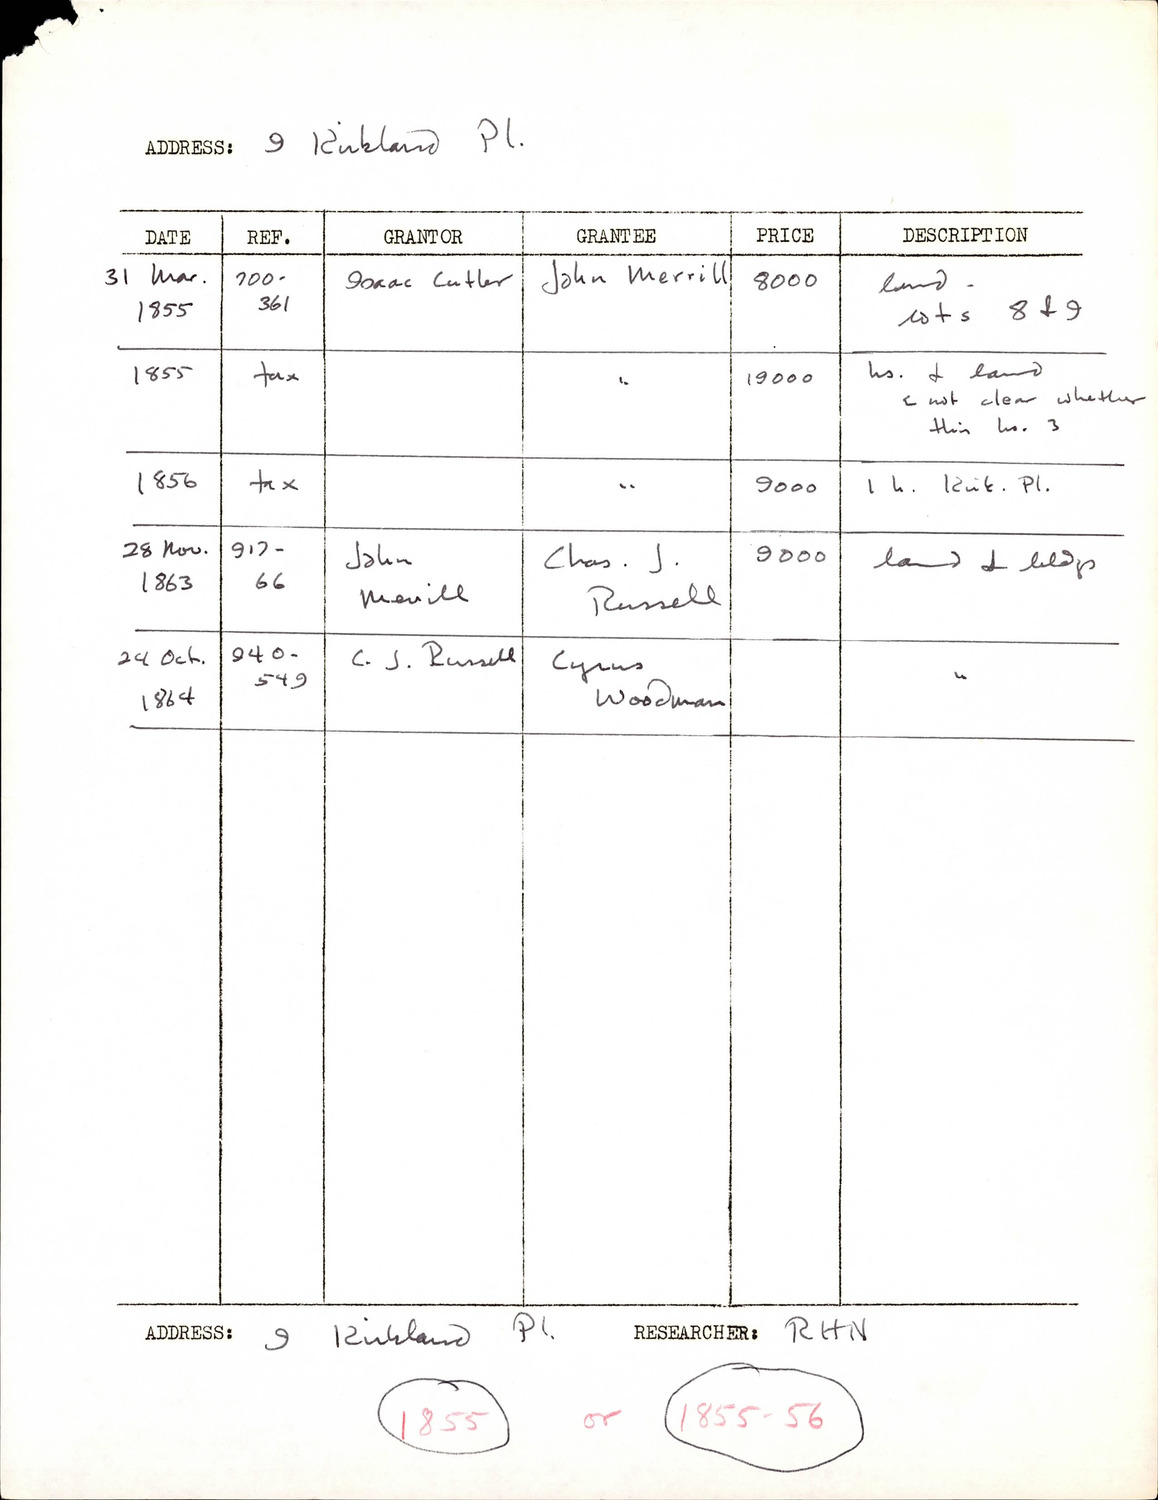 ADDRESS: 9 Kirkland Pl.
DATE REF. GRANTOR GRANTEE PRICE DESCRIPTION
31 Mar. 700- Isaac Cutler John Merrill 8000 land -
1855 361 lots 8 & 9
1855 tax " 19000 hs. & land
not clear whether
this hs.
1856 tax " 9000 1 h. Kirk. Pl.
28 Nov. 917- John Chas. J. 9000 land & bldgs
1863 66 Merrill Russell
24 Oct. 940- C. J. Russell Cyrus "
1864 549 Woodman
ADDRESS: 9 Kirkland Pl. RESEARCHER: RHN
1855 or 1855-56